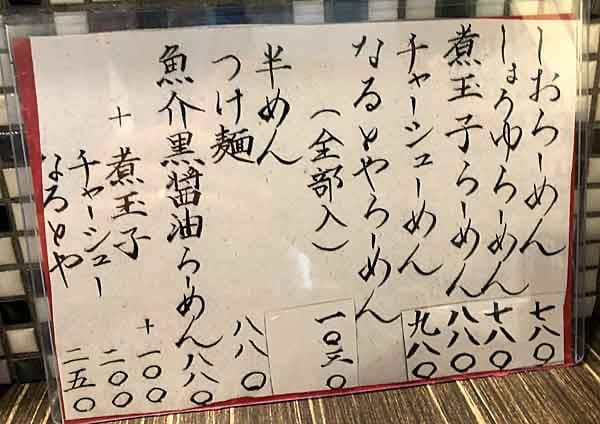 しおらーめん 七八〇
しょうゆらーめん 七八〇
煮玉子らーめん 八八〇
チャーシューめん 九八〇
なるとやらーめん
(全部入) 一〇三〇
半めん
つけ麺 八八〇
魚介黒醤油らーめん 八八〇
+ 煮玉子 +一〇〇
チャーシュー 二〇〇
なるとや 二五〇